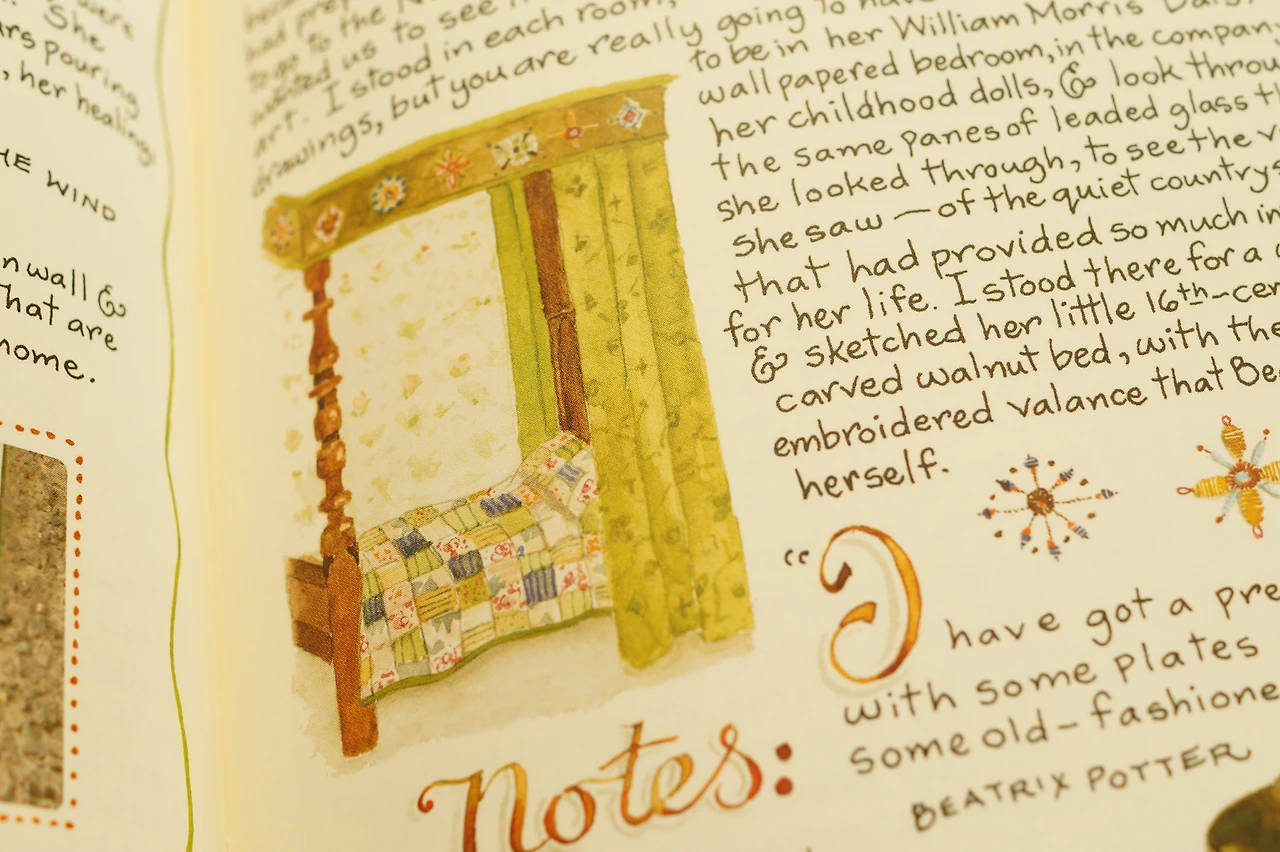 were
She
ars pouring
, her healing
HE WIND
n wall &
That are
home.
had prep
to go to the N
wanted us to see
art. I stood in each room,
drawings, but you are really going to have
to be in her William Morris "Daisy
wallpapered bedroom, in the company
her childhood dolls, & look throu
the same panes of leaded glass th
she looked through, to see the v
she saw — of the quiet countrys
that had provided so much in
for her life. I stood there for a
& sketched her little 16th-cen
carved walnut bed, with the
embroidered valance that Bea
herself.
"I have got a pre
with some plates
some old-fashione
BEATRIX POTTER
Notes: